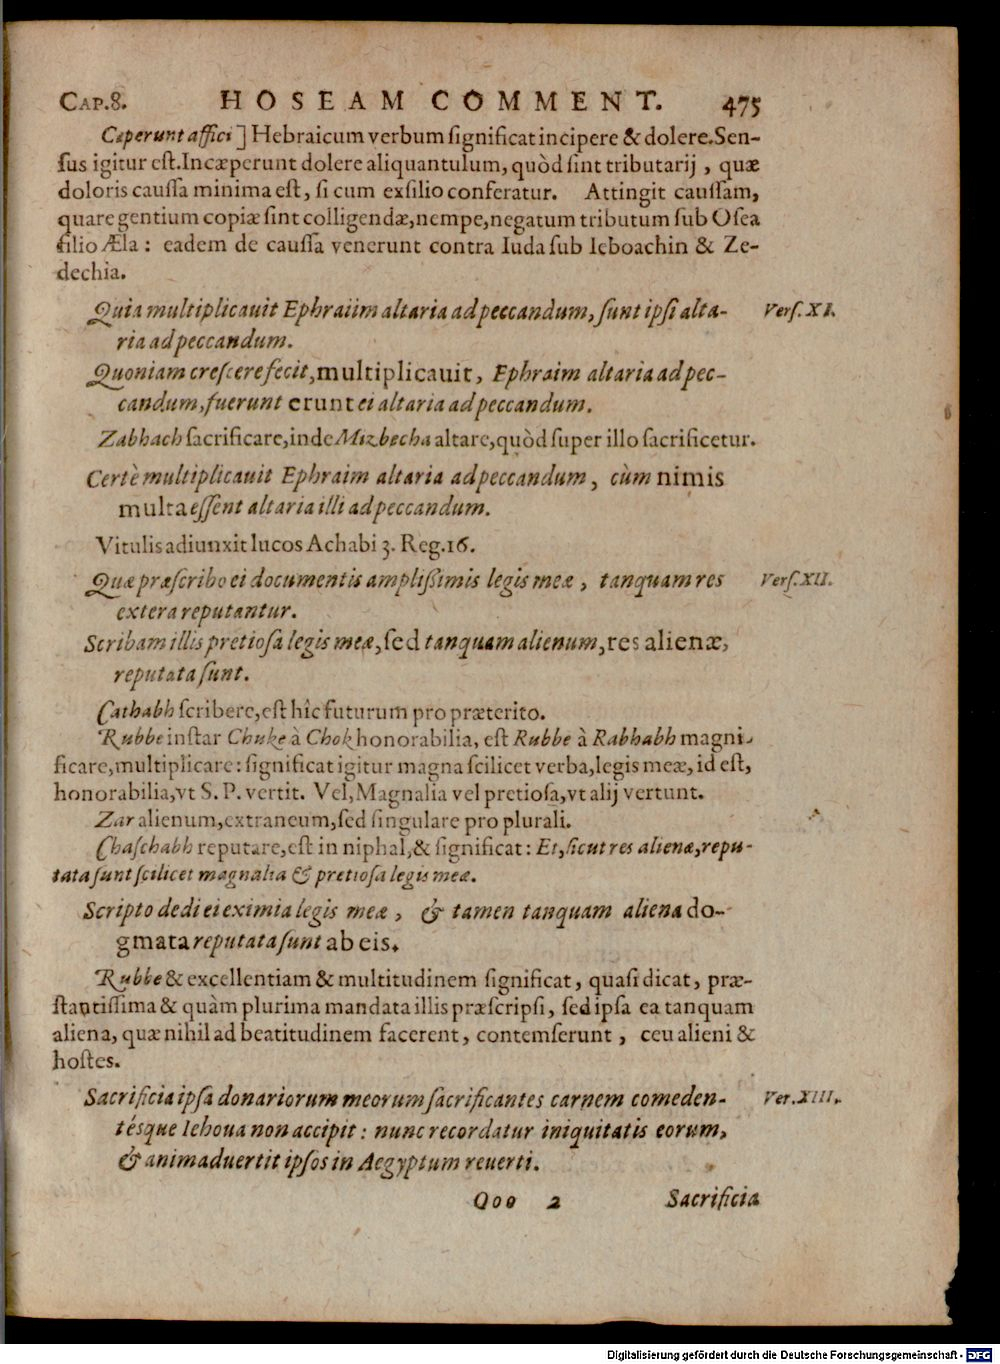 CAP.8. HOSEAM COMMENT. 475
Cœperunt affici] Hebraicum verbum significat incipere & dolere. Sen-
sus igitur est. Incæperunt dolere aliquantulum, quòd sint tributarij, quæ
doloris caussa minima est, si cum exsilio conferatur. Attingit caussam,
quare gentium copiæ sint colligendæ, nempe, negatum tributum sub Osea
filio Æla: eadem de caussa venerunt contra Iuda sub Ieboachin & Ze-
dechia.
Quia multiplicauit Ephraiim altaria ad peccandum, sunt ipsi alta- Vers. XI.
ria ad peccandum.
Quoniam crescere fecit, multiplicauit, Ephraim altaria ad pec-
candum, fuerunt erunt ei altaria ad peccandum.
Zabhach sacrificare, inde Mizbecha altare, quòd super illo sacrificetur.
Certè multiplicauit Ephraim altaria ad peccandum, cùm nimis
multa essent altaria illi ad peccandum.
Vitulis adiunxit lucos Achabi 3. Reg. 16.
Quæ præscribo ei documentis amplissimis legis meæ, tanquam res Vers. XII.
extera reputantur.
Scribam illis pretiosa legis meæ, sed tanquam alienum, res alienæ,
reputata sunt.
Cathabh scribere, est hîc futurum pro præterito.
Rubbe instar Chuke à Chok honorabilia, est Rubbe à Rabhabh magni-
ficare, multiplicare: significat igitur magna scilicet verba, legis meæ, id est,
honorabilia, vt S. P. vertit. Vel, Magnalia vel pretiosa, vt alij vertunt.
Zar alienum, extraneum, sed singulare pro plurali.
Chaschabh reputare, est in niphal, & significat: Et, sicut res alienæ, repu-
tata sunt scilicet magnalia & pretiosa legis meæ.
Scripto dedi ei eximia legis meæ, & tamen tanquam aliena do-
gmata reputata sunt ab eis.
Rubbe & excellentiam & multitudinem significat, quasi dicat, præ-
stantissima & quàm plurima mandata illis præscripsi, sed ipsa ea tanquam
aliena, quæ nihil ad beatitudinem facerent, contemserunt, ceu alieni &
hostes.
Sacrificia ipsa donariorum meorum sacrificantes carnem comeden- Ver. XIII.
tésque Iehoua non accipit: nunc recordatur iniquitatis eorum,
& animaduertit ipsos in Aegyptum reuerti.
Qoo 2 Sacrificia
Digitalisierung gefördert durch die Deutsche Forschungsgemeinschaft - DFG